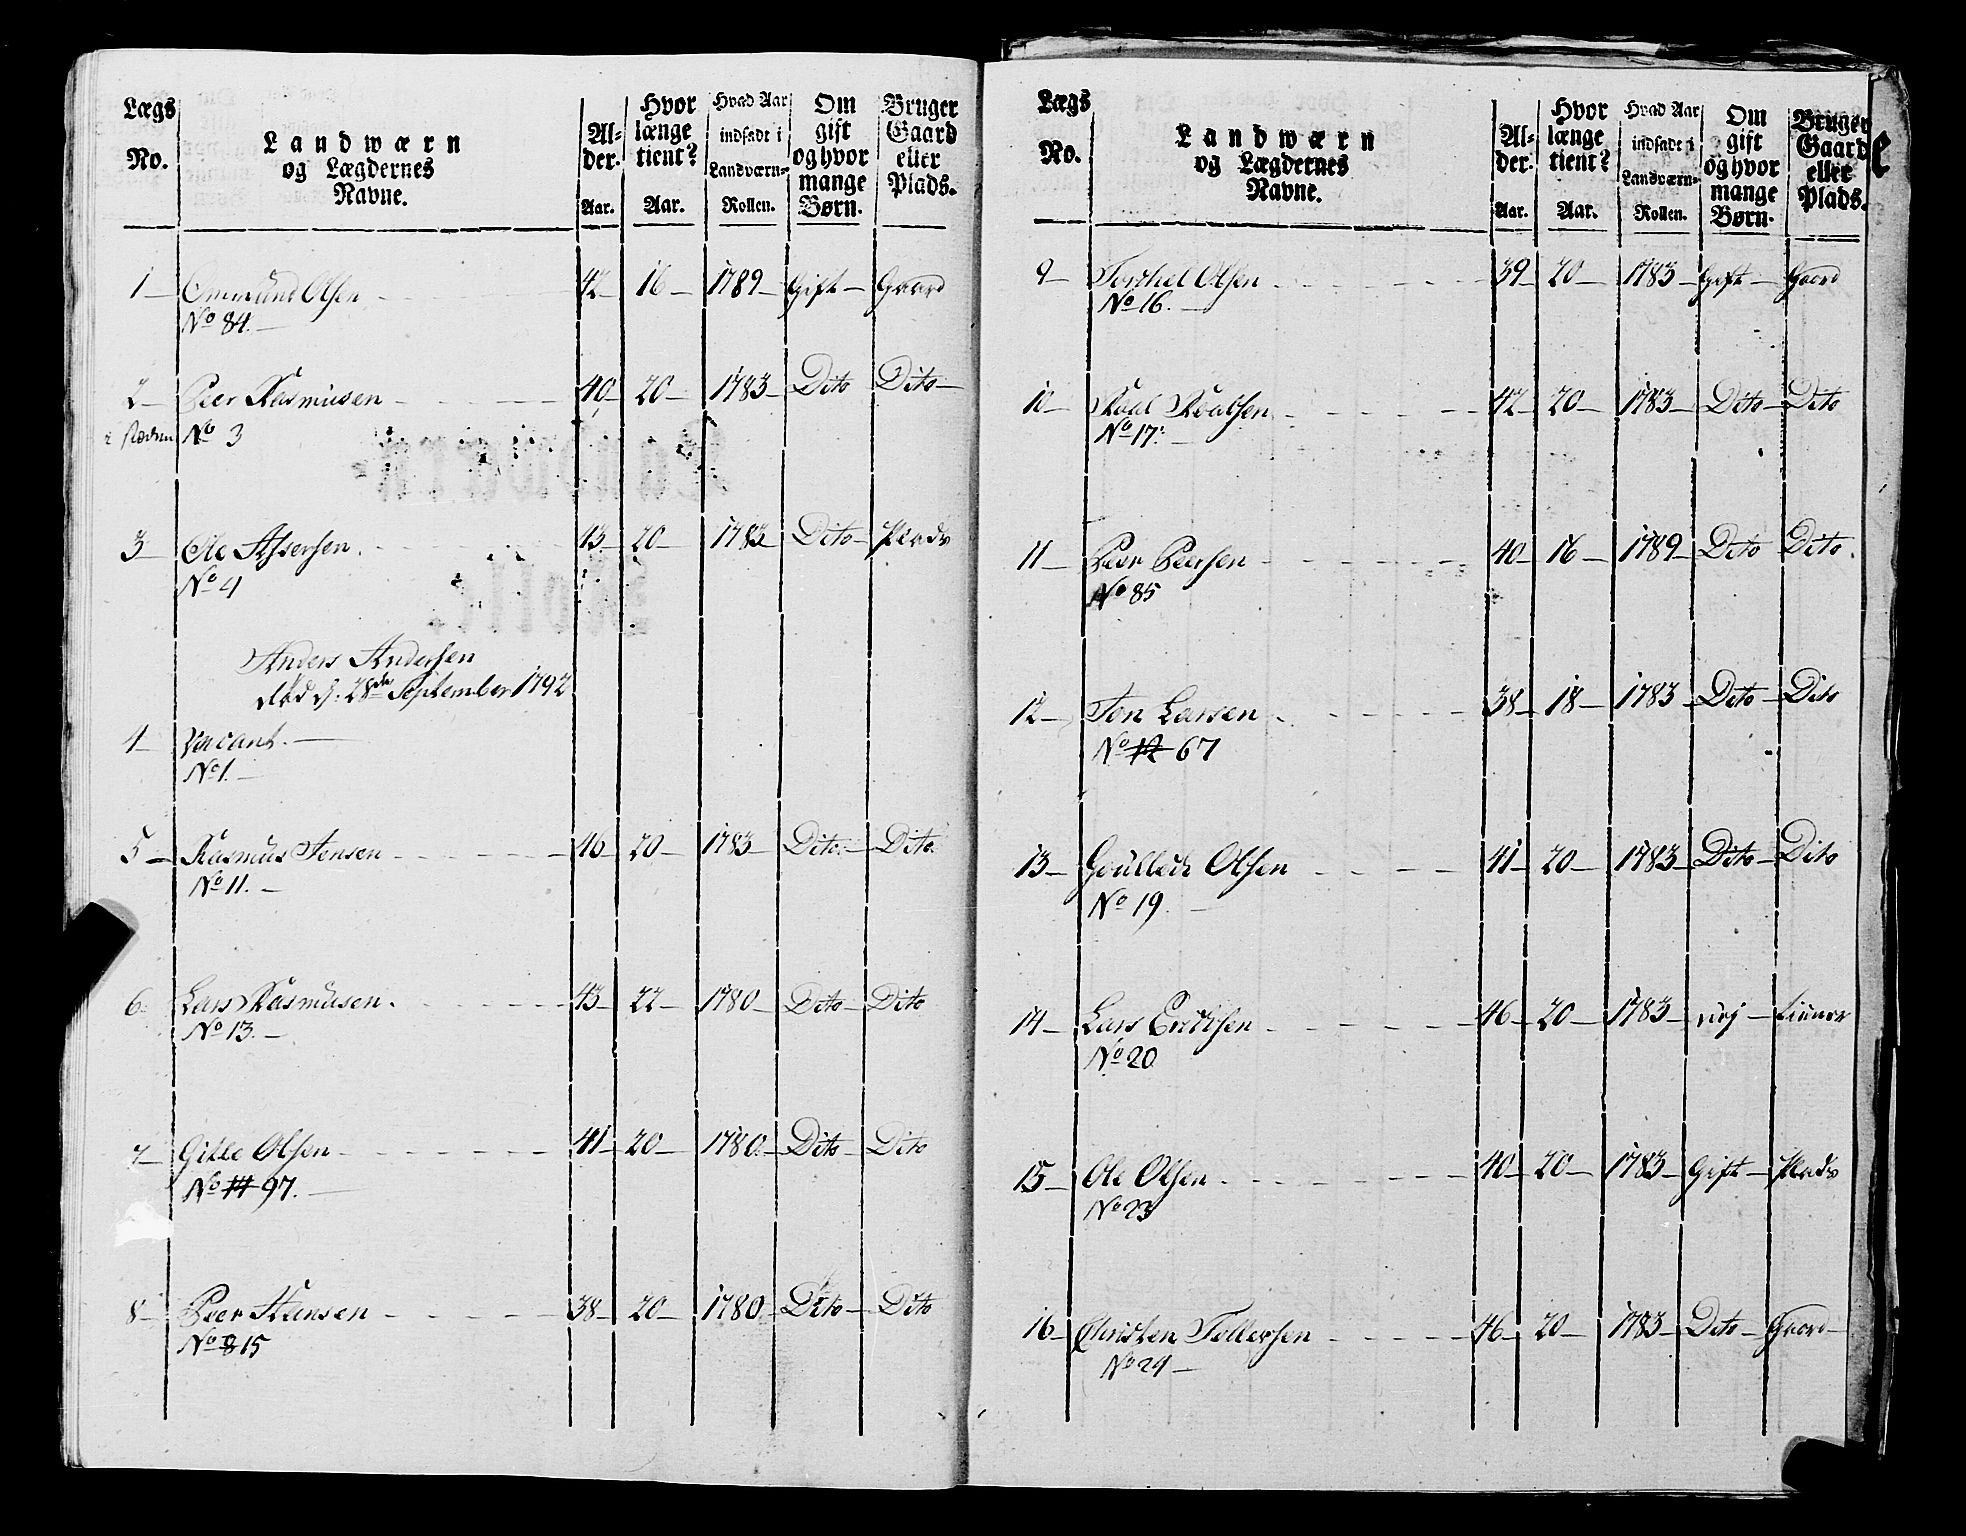 Lægs No. | Landwærn og Lægdernes Navne. | Alder. Aar. | Hvor længe tient? Aar. | Hvad Aar indsadt i Landværn-Rollen. | Om gift og hvor mange Børn. | Bruger Gaard eller Plads.
1 — Ommund Olsen — 42 — 16 — 1789 — Gift — Gaard
No 84. —
2 — Peer Rasmusen — 40 — 20 — 1783 — Dito — Dito —
No 3
3 — Ole Assersen. — 43 — 20 — 1783 — Dito — Plads
No 4
Anders Andersen
død d. 28de September 1792
4 — Vacant. —
No 1. —
5 — Rasmus Jensen — 46 — 20 — 1783 — Dito. — Dito.
No 11. —
6 Lars Rasmusen. — 43 — 22 — 1780 — Dito — Dito
No 13. —
7 — Gitle Olsen — 41 — 20 — 1780. — Dito — Dito
No 97. —
8 — Peer Hansen — 38 — 20 — 1780 — Dito — Dito
No 8 15
Lægs No. | Landwærn og Lægdernes Navne. | Alder. Aar. | Hvor længe tient? Aar. | Hvad Aar indsadt i Landværn-Rollen. | Om gift og hvor mange Børn. | Bruger Gaard eller Plads.
9 — Torchel Olsen — 39 — 20 — 1783 — Gift — Gaard
No 16. —
10 — Roal Roalsen — 42 — 20 — 1783 — Dito — Dito
No 17. —
11 — Peer Peersen — 40 — 16 — 1789 — Dito — Dito.
No 85
12 — Jon Larsen — 38 — 18 — 1783 — Dito — Dito
No 12 67
13 — Goullech Olsen — 41 — 20 — 1783 — Dito — Dito
No 19. —
14 — Lars Erichsen — 46 — 20 — 1783 — nej —
No 20
15 — Ole Olsen — 40 — 20 — 1783 — Gift — Plads
No 23
16 — Christen Tollefsen — 46 — 20 — 1783 — Dito — Gaard —
No 24 —